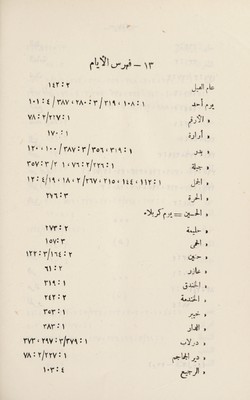 ١٣ - فهرس الأيام
عام الفيل ٢ : ١٤٢
يوم أحد ١ : ١٠٨ ، ٢١٩ / ٣ : ٢٨٠ ، ٣٨٧ / ٤ : ١٠١
« الأرقم ١ : ٢٢٧ / ٢ : ٧٨
« أوارة ١ : ١٧٠
« بدر ١ : ٣١٩ ، ٣٥٦ / ٣ : ٣٨٧ / ١٠٠ ، ١٢٠
« جبلة ١ : ٢٢٦ / ٢ : ٧٦ ، ٢ / ٣ : ٣٥٧
« الجمل ١ : ١١٢ ، ١٤٤ ، ٢١٥ ، ٢٦٧ / ٢ : ١٨ ، ١٩ / ٤ : ١٢
« الحرة ٣ : ٢٧٦
« الحسين = يوم كربلاء
« حليمة ٢ : ٢٧٣
« الحمى ٣ : ١٥٧
« حنين ٢ : ١٦٤ / ٣ : ١٢٢
« خازر ٢ : ٦١
« الخندق ١ : ٣١٩
« الخندمة ٢ : ٢٤٢
« خيبر ١ : ٣٥٣
« الدار ١ : ٣٨٣
« دولاب ١ : ٣٧٩ / ٣ : ٢٩٧ ، ٣٧٣
« دير الجماجم ١ : ٢٢٧ / ٢ : ٧٨
« الرجيع ٤ : ١٠٣